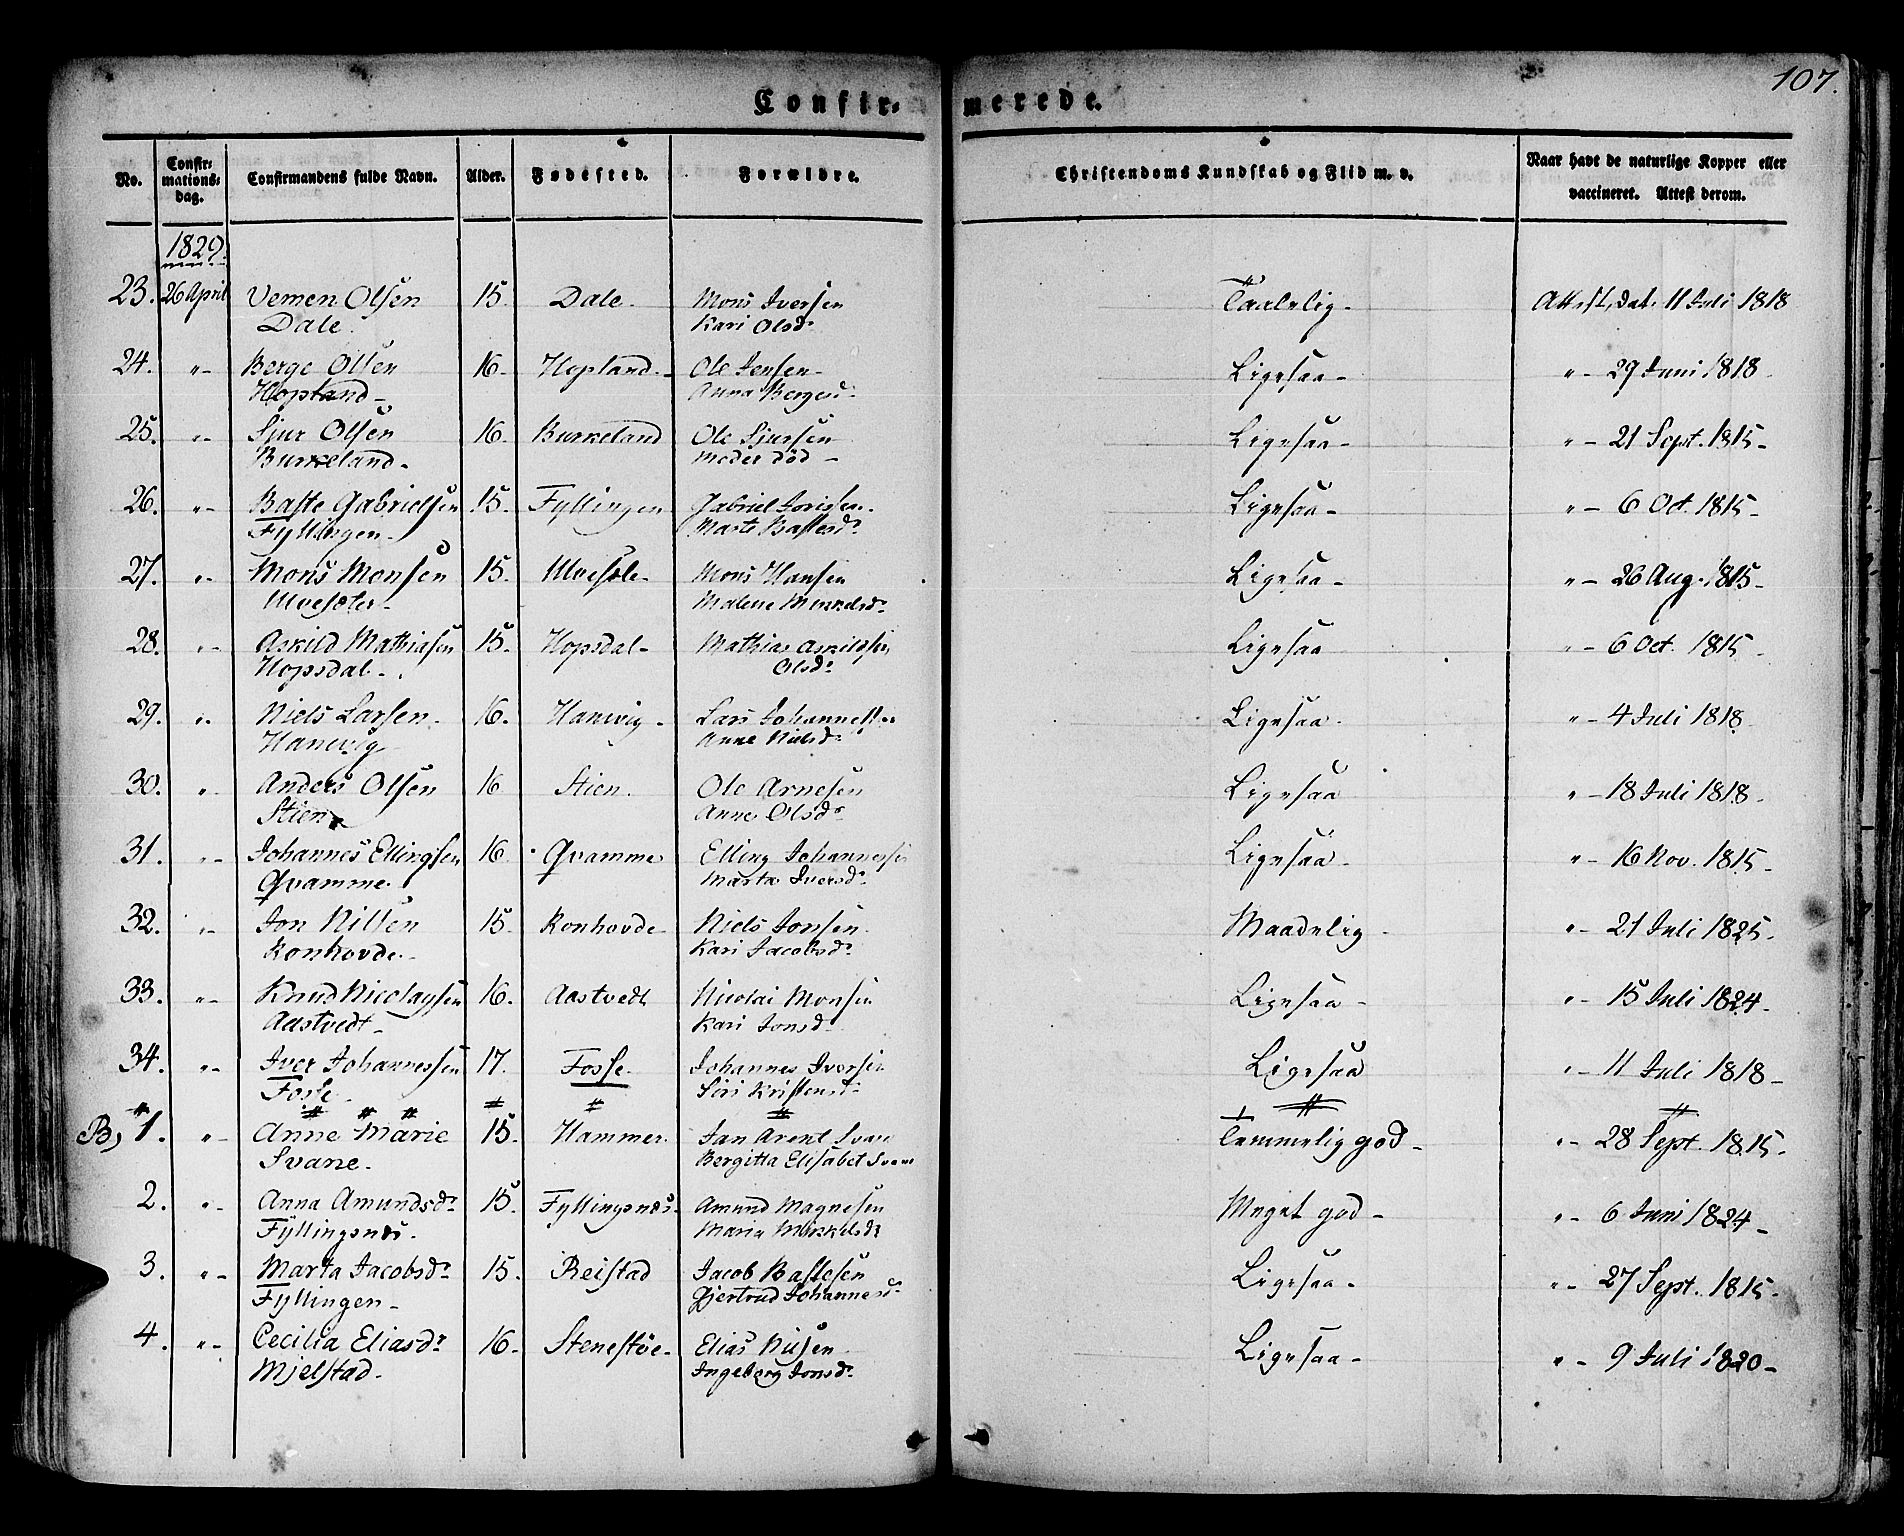 107.
Confir- merede.
No. Confirmations-dag. Confirmandens fulde Navn. Alder. Fødested. Forældre. Christendoms Kundskab og Flid m. v. Naar havt de naturlige Kopper eller vaccineret. Attest derom.
1829.
23. 26 April Vemen Olsen 15. Dale. Mons Iversen Taalelig- Attest, dat. 11 Juli 1818
Dale. Kari Olsd.
24. "- Berge Olsen 16- Hopland.- Ole Jensen- Ligesaa- "- 29 Juni 1818
Hopland- Anna Bergesd.
25. "- Sjur Olsen 16. Burkeland Ole Sjursen Ligesaa- "- 21 Sept. 1815-
Burkeland- Moder död-
26. "- Baste Gabrielsen 15- Fyllingen Gabriel Jorisen. Ligesaa- "- 6 Oct. 1815-
Fyllingen- Marte Bastesd.
27. "- Mons Monsen 15. Ulvesæte- Mons Hansen Ligesaa- "- 26 Aug. 1815-
Ulvesæter- Malene Mikkelsd.
28. "- Askild Mathiasen 15- Hopsdal- Mathias Askildsen Ligesaa "- 6 Oct. 1815-
Hopsdal- Olsd.
29. "- Niels Larsen. 16. Hanevig- Lars Johannessen Ligesaa- "- 4 Juli 1818
Hanevig Anne Nielsd.
30. " Anders Olsen 16 Stien. Ole Arnesen Ligesaa "- 18 Juli 1818-
Stien Anne Olsd.
31. "- Johannes Ellingsen 16. Qvamme Elling Johannessen Ligesaa- "- 16 Nov. 1815-
Qvamme. Marta Iversd.
32. "- Jon Nilsen 15- Ronhovde- Niels Jonsen. Maadelig- "- 21 Juli 1825-
Ronhovde- Kari Jacobsd.
33. "- Knud Nicolaysen 16. Aastvedt Nicolai Monsen Ligesaa- "- 15 Juli 1824-
Aastvedt- Kari Jonsd.
34. "- Iver Johannessen 17. Fosse. Johannes Iversen Ligesaa "- 11 Juli 1818-
Fosse- Siri Kristensd.
B, 1. "- Anne Marie 15- Hammer. Jan Arent Svane Temmelig god- "- 28 Sept. 1815-
Svane- Bergitta Elisabet Svane
2. "- Anna Amundsd. 15. Fyllingsnæs- Amund Magnesen Meget god- "- 6 Juni 1824-
Fyllingsnæs. Maria Mikkelsd
3. "- Marta Jacobsd. 15. Reistad Jacob Bastesen Ligesaa- "- 27 Sept. 1815-
Fyllingen- Gjertrud Johannesd.
4. "- Cecilia Eliasd. 16- Stenestöe- Elias Nilsen Ligesaa- "- 9 Juli 1820-
Mjelstad- Ingeborg Jonsd.